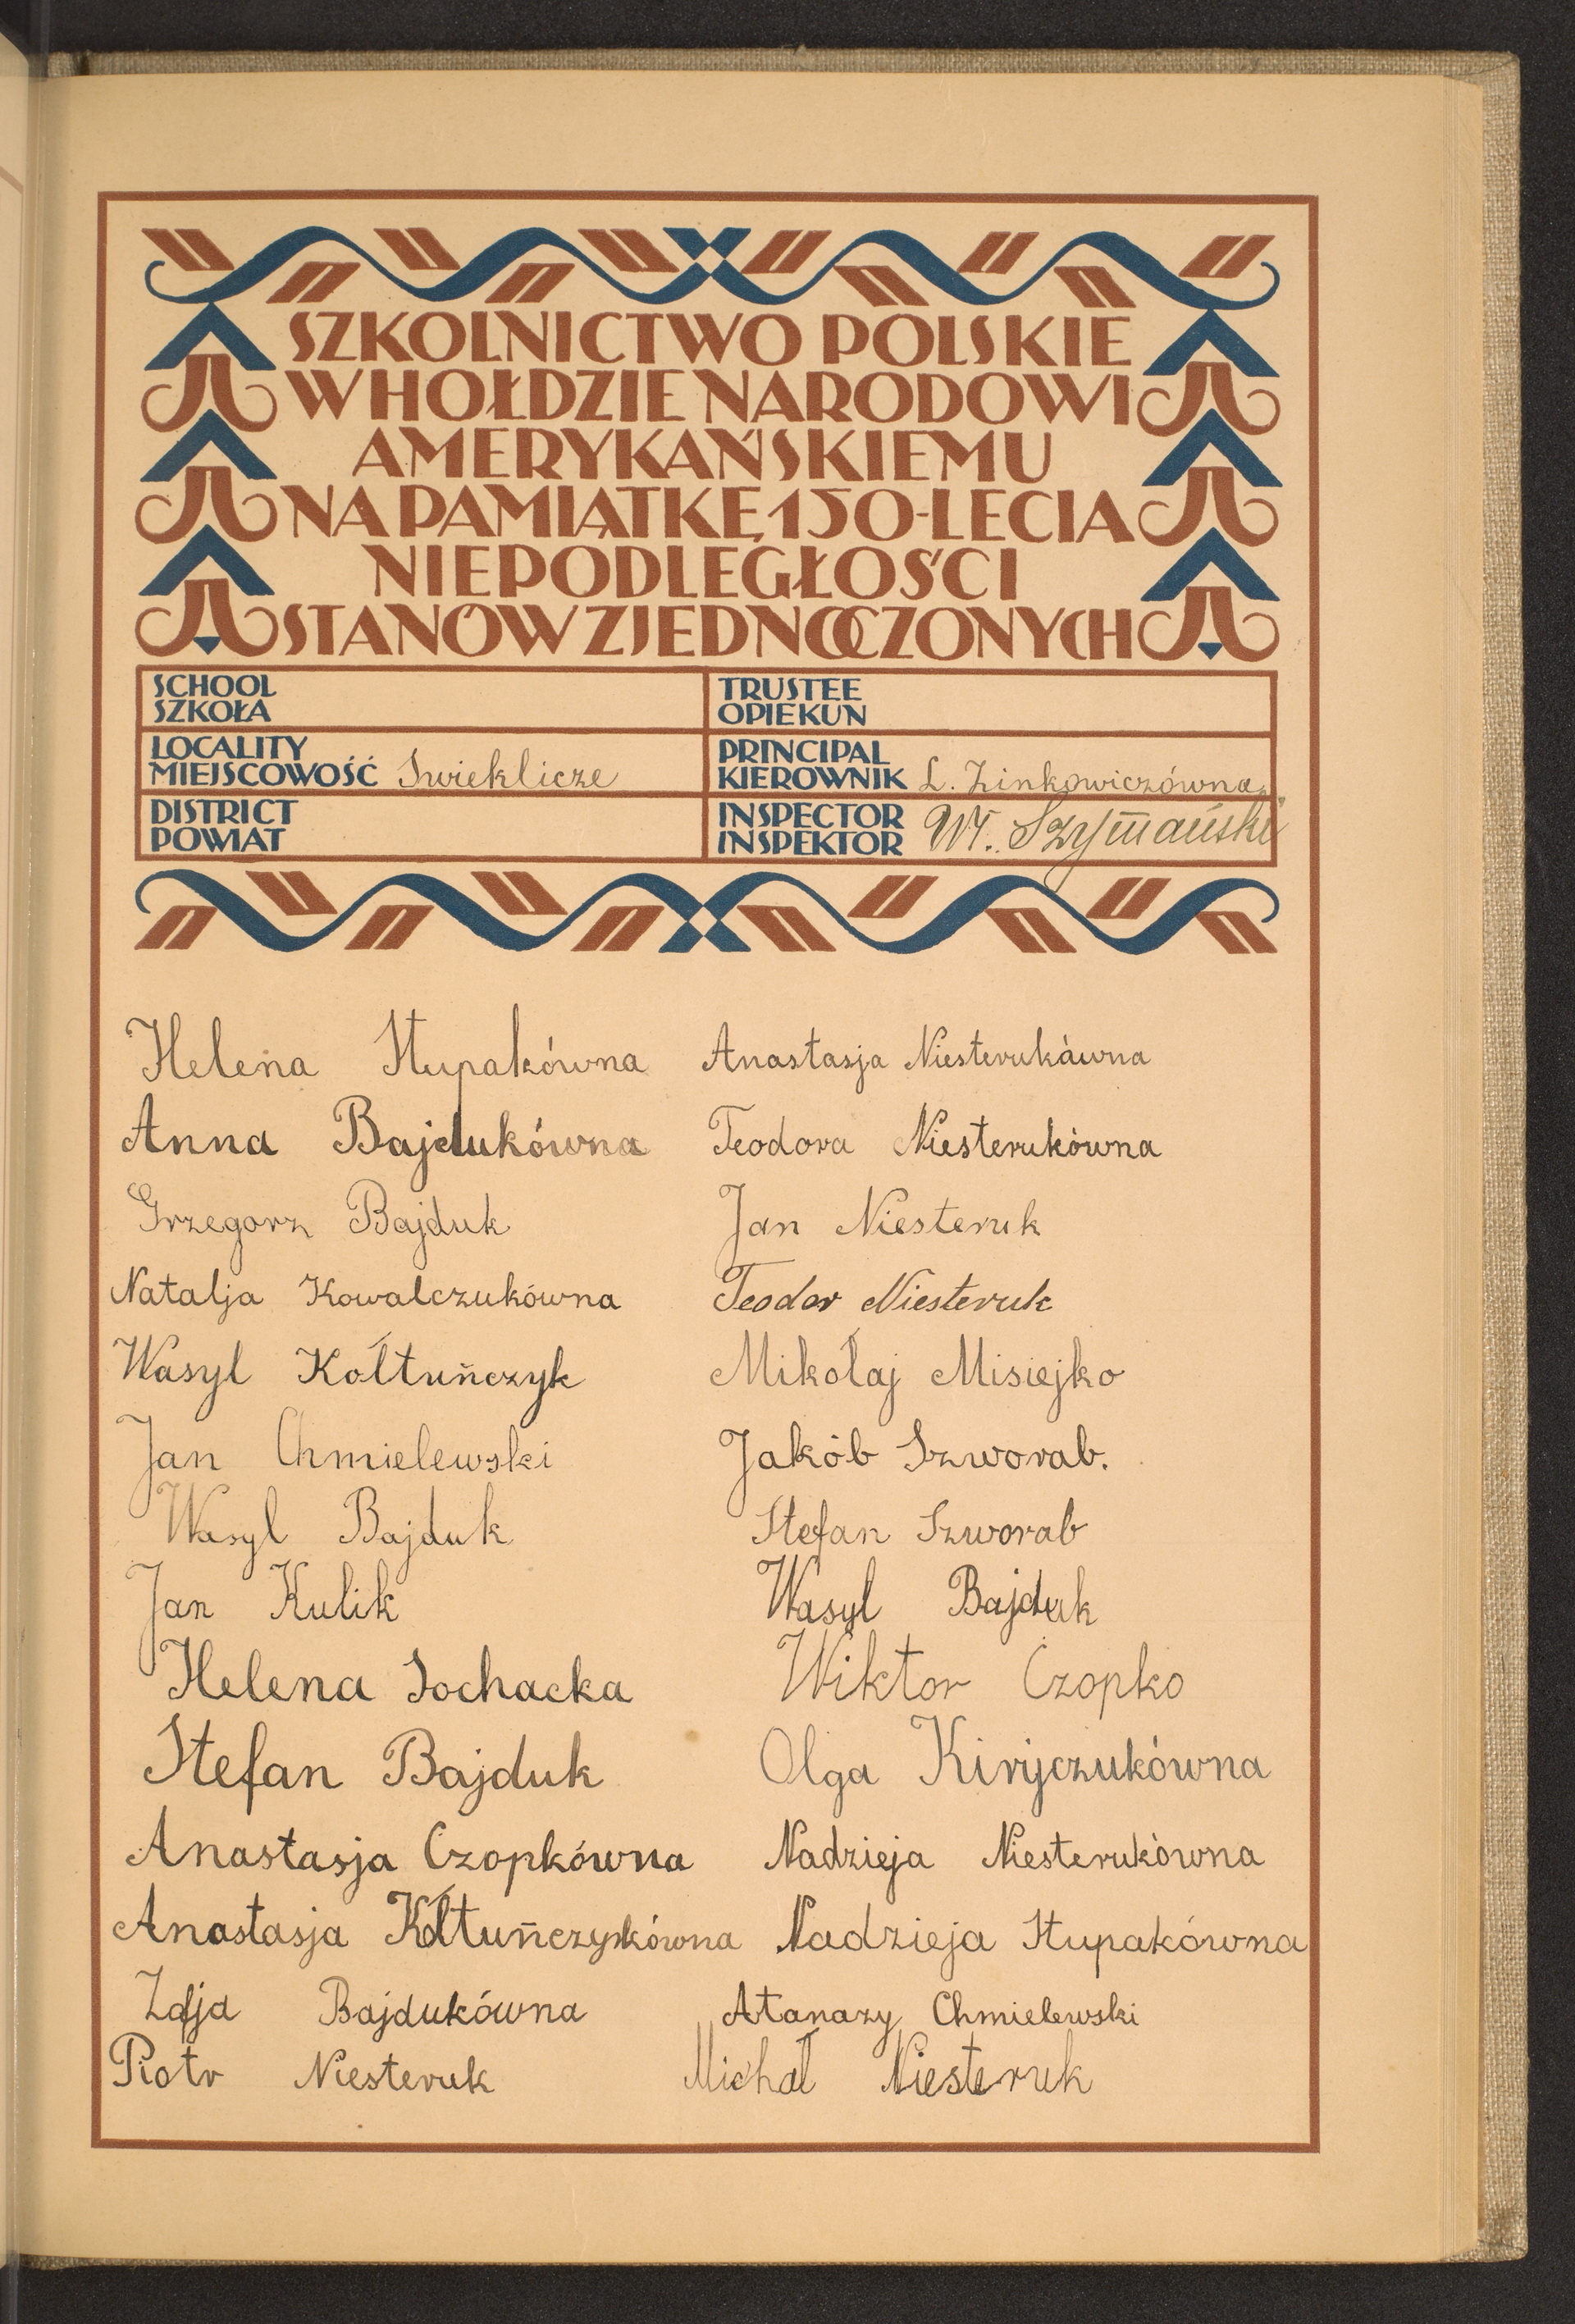 SZKOLNICTWO POLSKIE
W HOŁDZIE NARODOWI
AMERYKAŃSKIEMU
NA PAMIĄTKĘ 150-LECIA
NIEPODLEGŁOŚCI
STANÓW ZJEDNOCZONYCH
SCHOOL
SZKOŁA
TRUSTEE
OPIEKUN
LOCALITY
MIEJSCOWOŚĆ Swieklicze
PRINCIPAL
KIEROWNIK L. Zinkowiczówna
DISTRICT
POWIAT
INSPECTOR
INSPEKTOR Wł. Szymański
Helena Stupakówna
Anna Bajdukówna
Grzegorz Bajduk
Natalja Kowalczukówna
Wasyl Kołtuńczyk
Jan Chmielewski
Wasyl Bajduk
Jan Kulik
Helena Sochacka
Stefan Bajduk
Anastasja Czopkówna
Anastasja Kołtuńczykówna
Zofja Bajdukówna
Piotr Niesteruk
Anastasja Niesterukówna
Teodora Niesterukówna
Jan Niesteruk
Teodor Niesteruk
Mikołaj Misiejko
Jakób Szworab.
Stefan Szworab
Wasyl Bajduk
Wiktor Czopko
Olga Kiryczukówna
Nadzieja Niesterukówna
Nadzieja Stupakówna
Atanazy Chmielewski
Michał Niesteruk